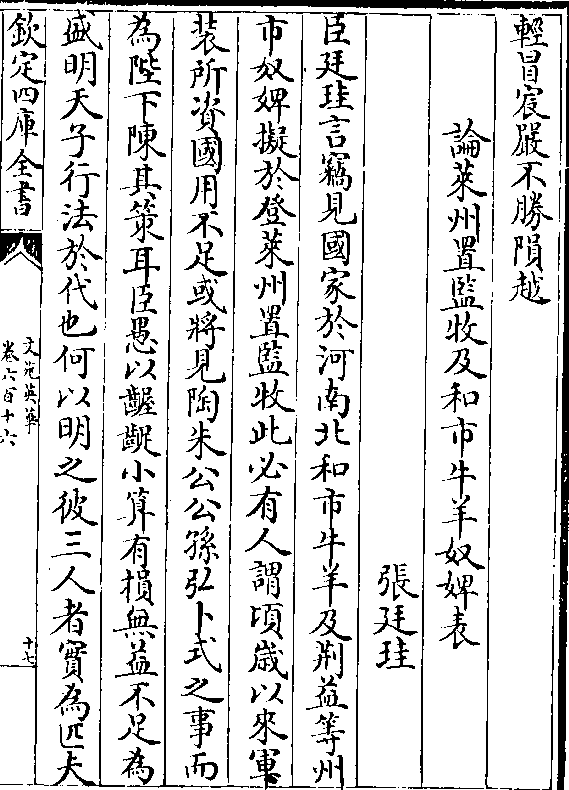 輕冒宸嚴不勝隕越
論萊州置監牧及和市牛羊奴婢表
張廷珪
臣廷珪言竊見國家於河南北和市牛羊及荆益等州
市奴婢擬於登萊州置監牧此必有人謂頃歲以來軍
裝所資國用不足或將見陶朱公公孫弘卜式之事而
為陛下陳其策耳臣愚以齷齪小算有損無益不足為
盛明天子行法於代也何以明之彼三人者實為匹夫
欽定四庫全書
文苑英華
卷六百十六
十七